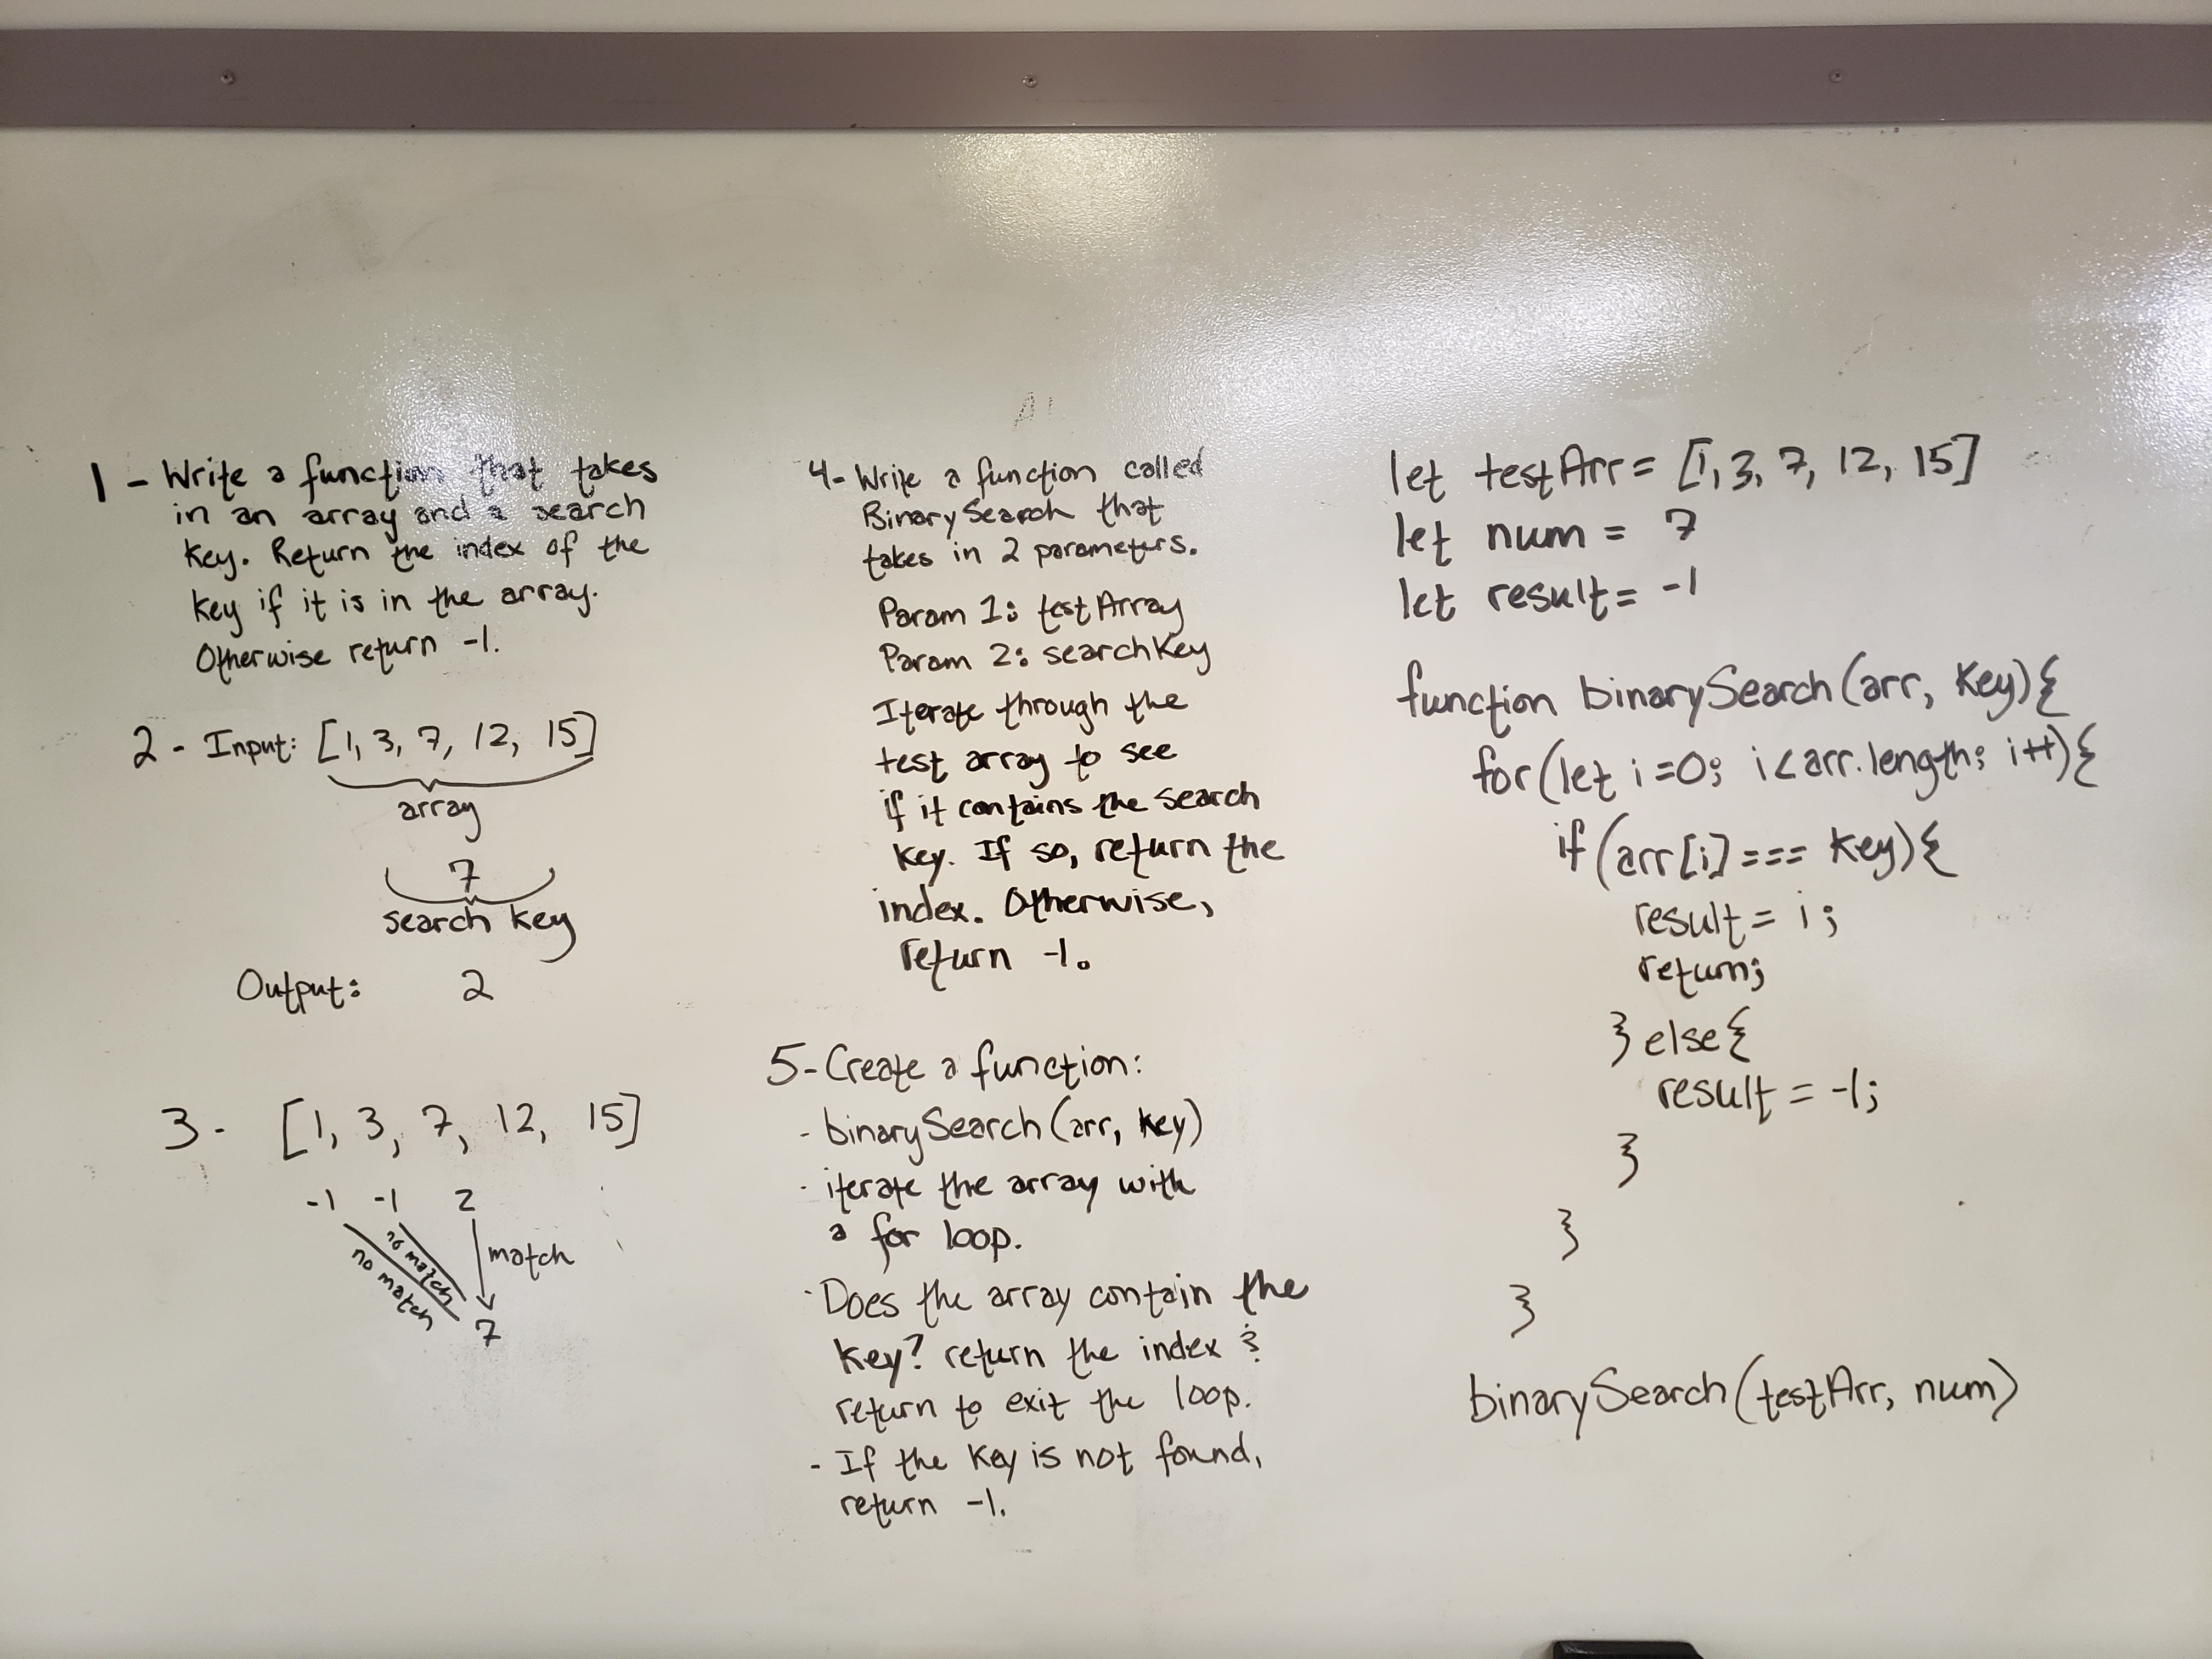 1 - Write a function that takes
in an array and a search
key. Return the index of the
key if it is in the array.
Otherwise return -1.
2 - Input: [1, 3, 7, 12, 15]
array
7
search key
Output: 2
3 - [1, 3, 7, 12, 15]
-1 -1 2
no match
no match
match
7
4- Write a function called
BinarySearch that
takes in 2 parameters.
Param 1: testArray
Param 2: searchKey
Iterate through the
test array to see
if it contains the search
key. If so, return the
index. Otherwise,
return -1.
5- Create a function:
- binarySearch(arr, key)
- iterate the array with
a for loop.
- Does the array contain the
key? return the index &
return to exit the loop.
- If the key is not found,
return -1.
let testArr = [1, 3, 7, 12, 15]
let num = 7
let result = -1
function binarySearch(arr, key){
for(let i=0; i<arr.length; i++){
if(arr[i] === key){
result = i;
return;
} else{
result = -1;
}
}
}
binarySearch(testArr, num)